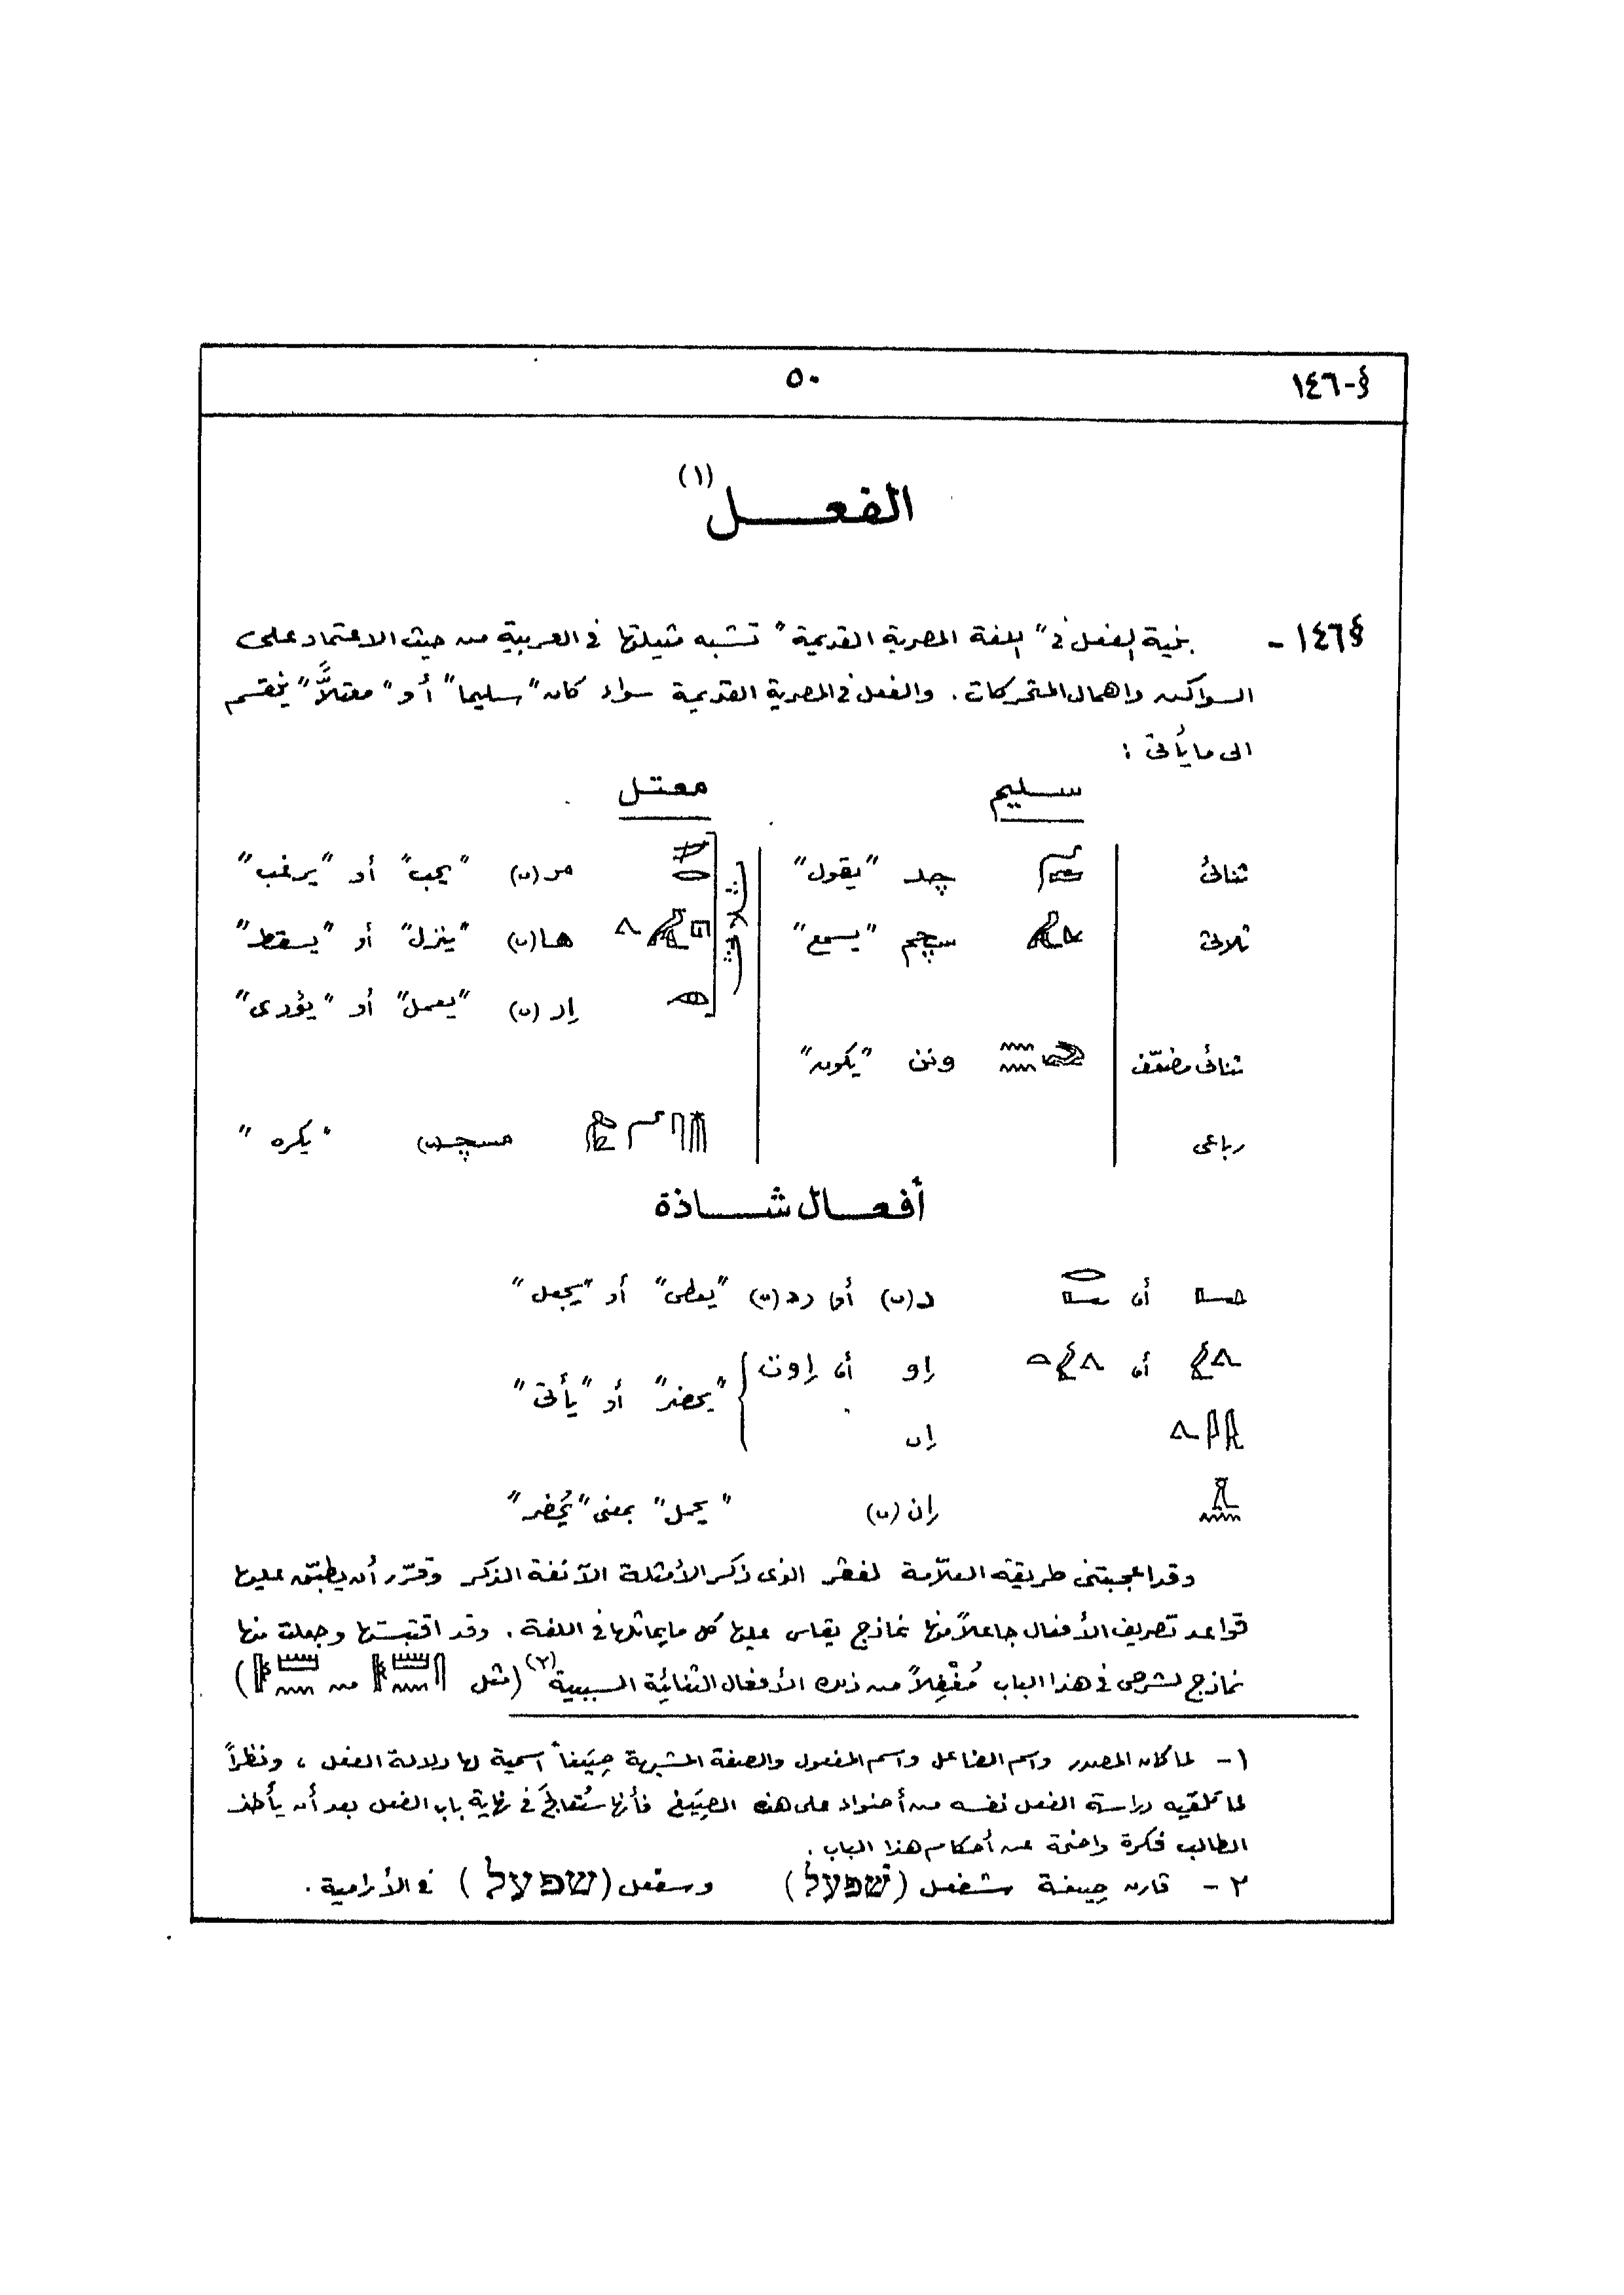 §-١٤٦
٥٠
الفعــــل (١)
§١٤٦- بنية الفعل فى "اللغة المصرية القديمة" تشبه مثيلتها فى العربية من حيث الاعتماد على
السواكن واهمال المتحركات. والفعل فى المصرية القديمة سواء كان "سليما" أو "معتلاًّ" ينقسم
الى ما يأتى :
سليم معتل
ثنائى چد "يقول" مر(ى) "يحب" أو "يرغب"
ثلاثى سچم "يسمع" ثلاثى ها(ى) "ينزل" أو "يسقط"
إر(ى) "يعمل" أو "يؤدى"
ثنائى مضعّف ونن "يكون"
رباعى مسچـ(ى) "يكره"
أفعــال شــــاذة
أو د(ى) أو رد(ى) "يعطى" أو "يجعل"
أو إو أو إوت "يحضر" أو "يأتى"
إى
إن(ى) "يحمل" بمعنى "يُحضر"
وقد اعجبتنى طريقة العلّامة لفڤر الذى ذكر الأمثلة الآنفة الذكر وقرّر أن يطبّق عليها
قواعد تصريف الأفعال جاعلاً منها نماذج يقاس عليها كل ما يماثلها فى اللغة. وقد اقتبستها وجعلت منها
نماذج لشرحى فى هذا الباب مُغْفِلاً من ذلك الأفعال الثنائية السببية (٢) (مثل من )
١- لما كان المصدر واسم الفاعل واسم المفعول والصفة المشبهة صِيَغاً اسمية لها دلالة الفعل ، ونظراً
لما تلقيه دراسة الفعل نفسه من أضواء على هذه الصِيَغ فأنها ستُعالَج فى نهاية باب الفعل بعد أن يأخذ
الطالب فكرة واضحة عن أحكام هذا الباب.
٢- قارن صيغة شفعل (שׁפעל) وسفعل (שפעל) فى الأرامية.